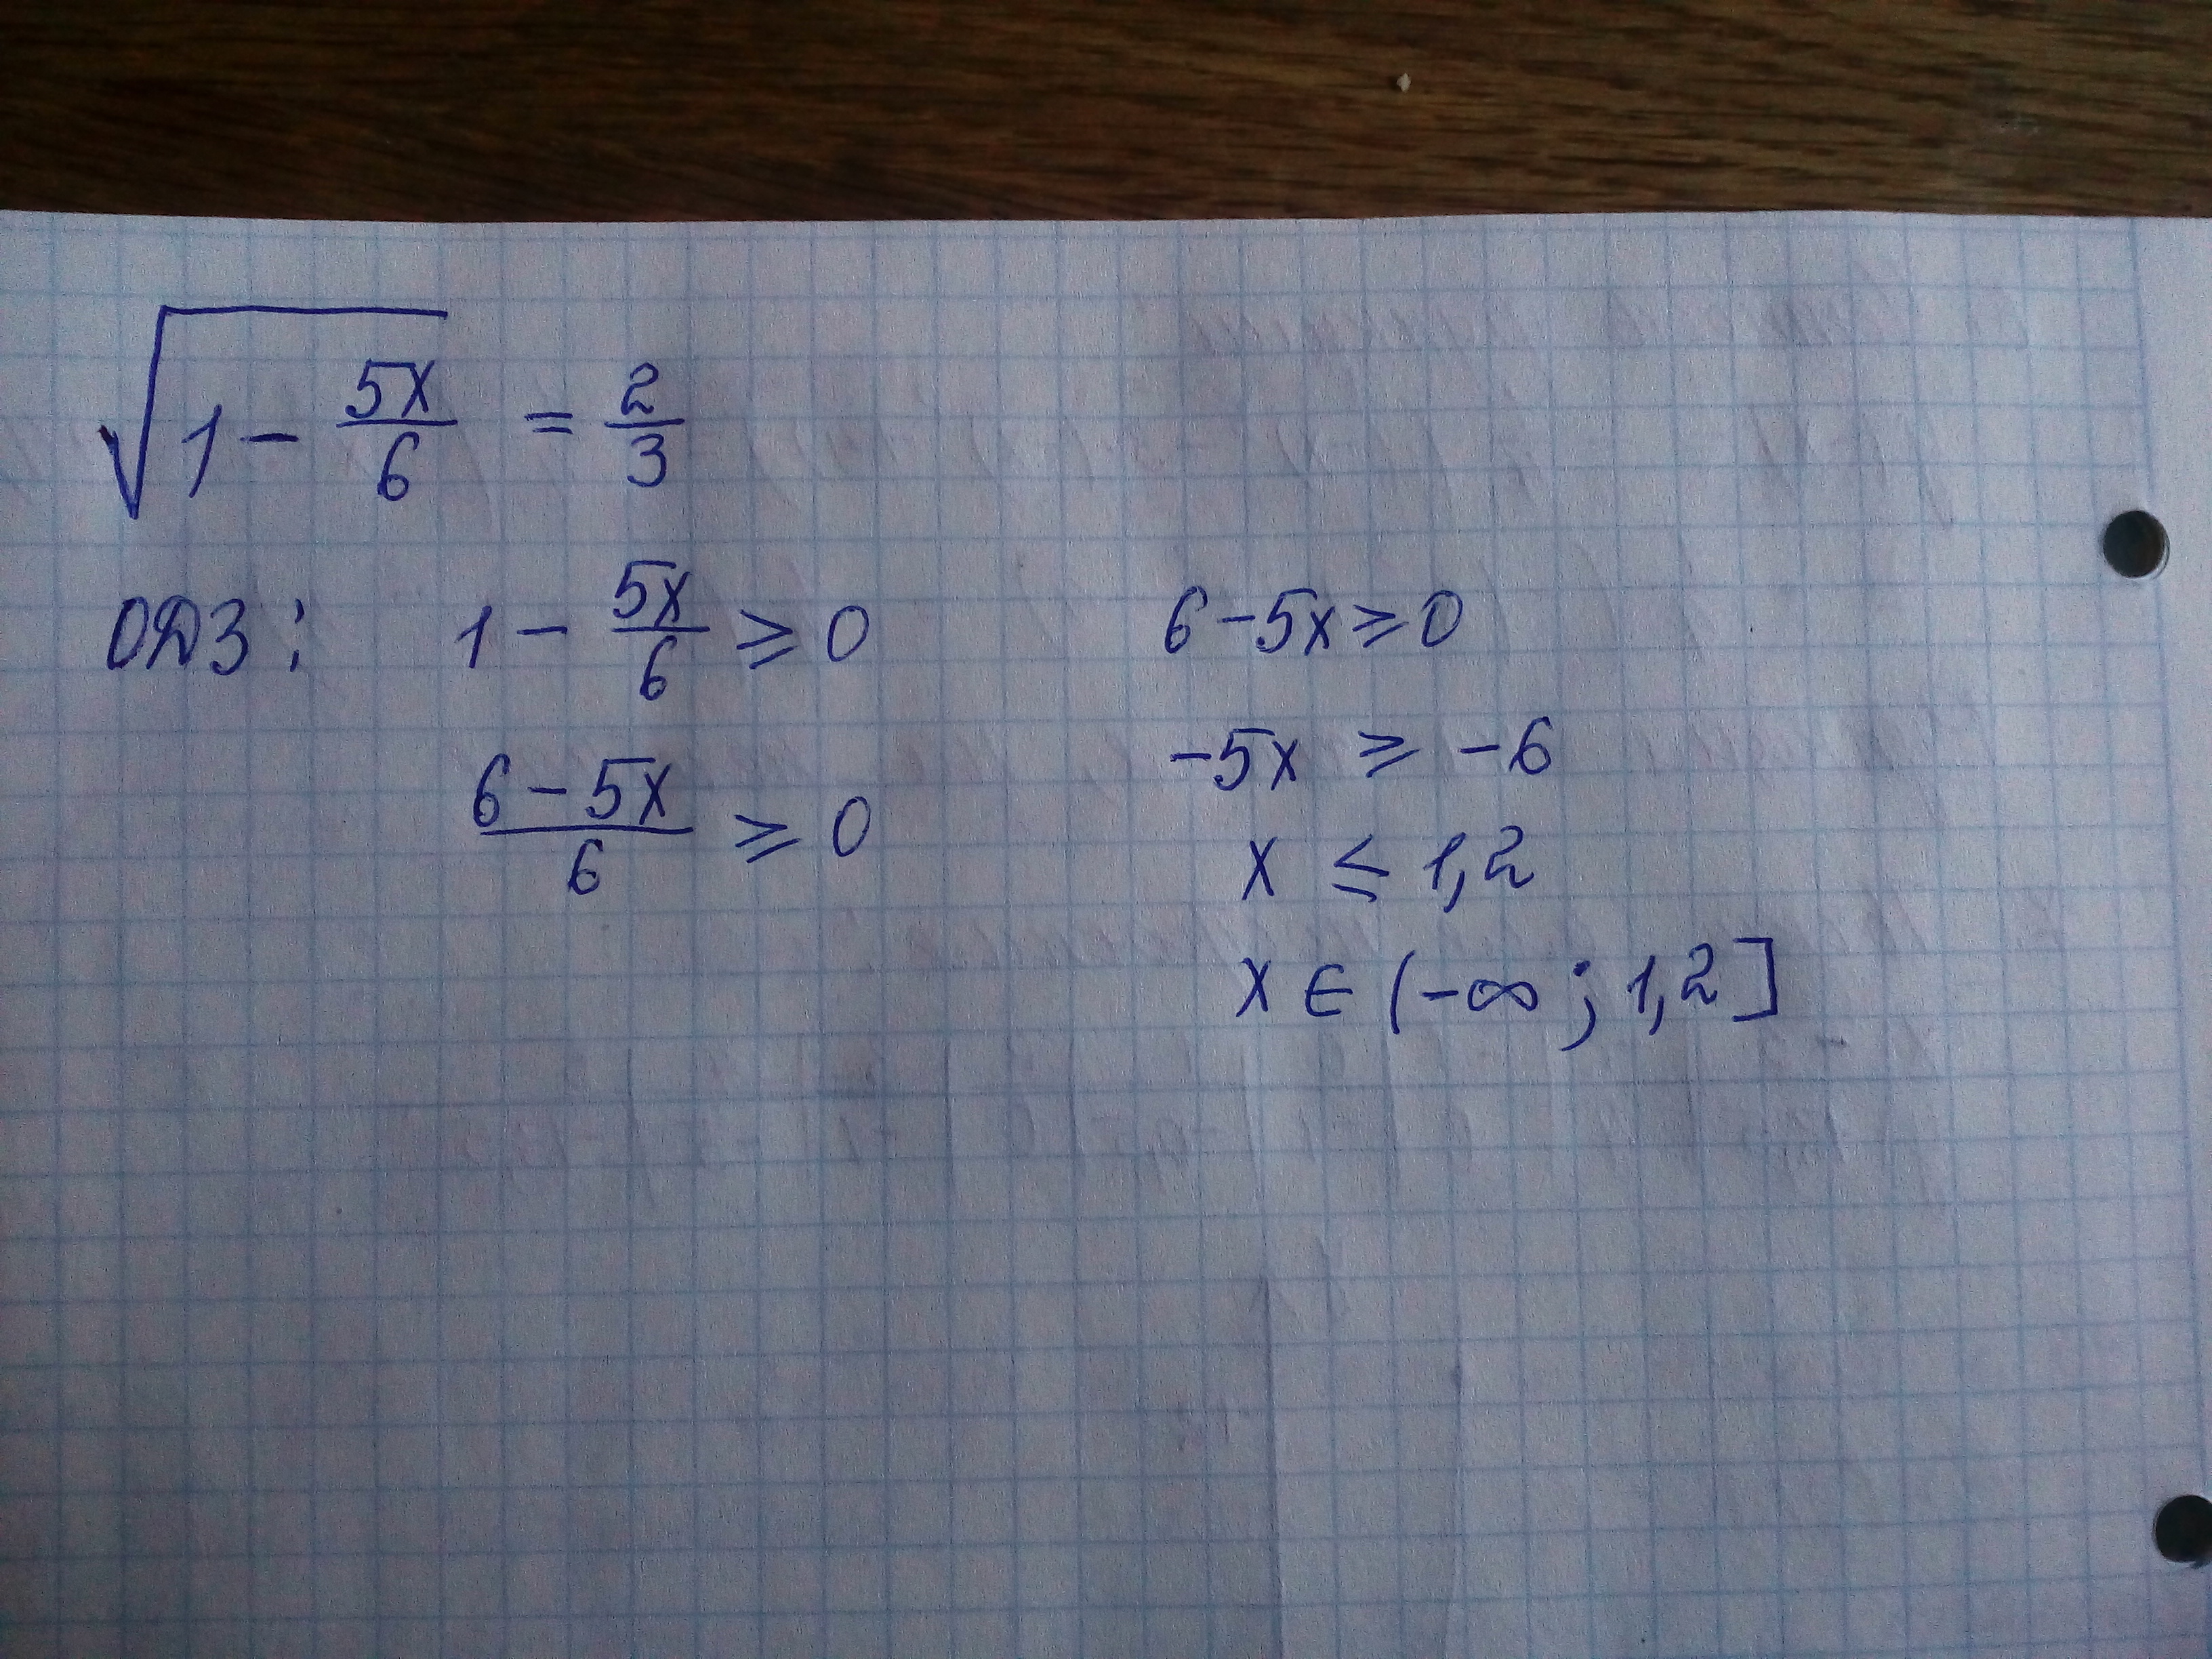 √(1 - 5x/6) = 2/3
ОДЗ: 1 - 5x/6 ⩾ 0
(6 - 5x)/6 ⩾ 0
6 - 5x ⩾ 0
-5x ⩾ -6
x ⩽ 1,2
x ∈ (-∞; 1,2]